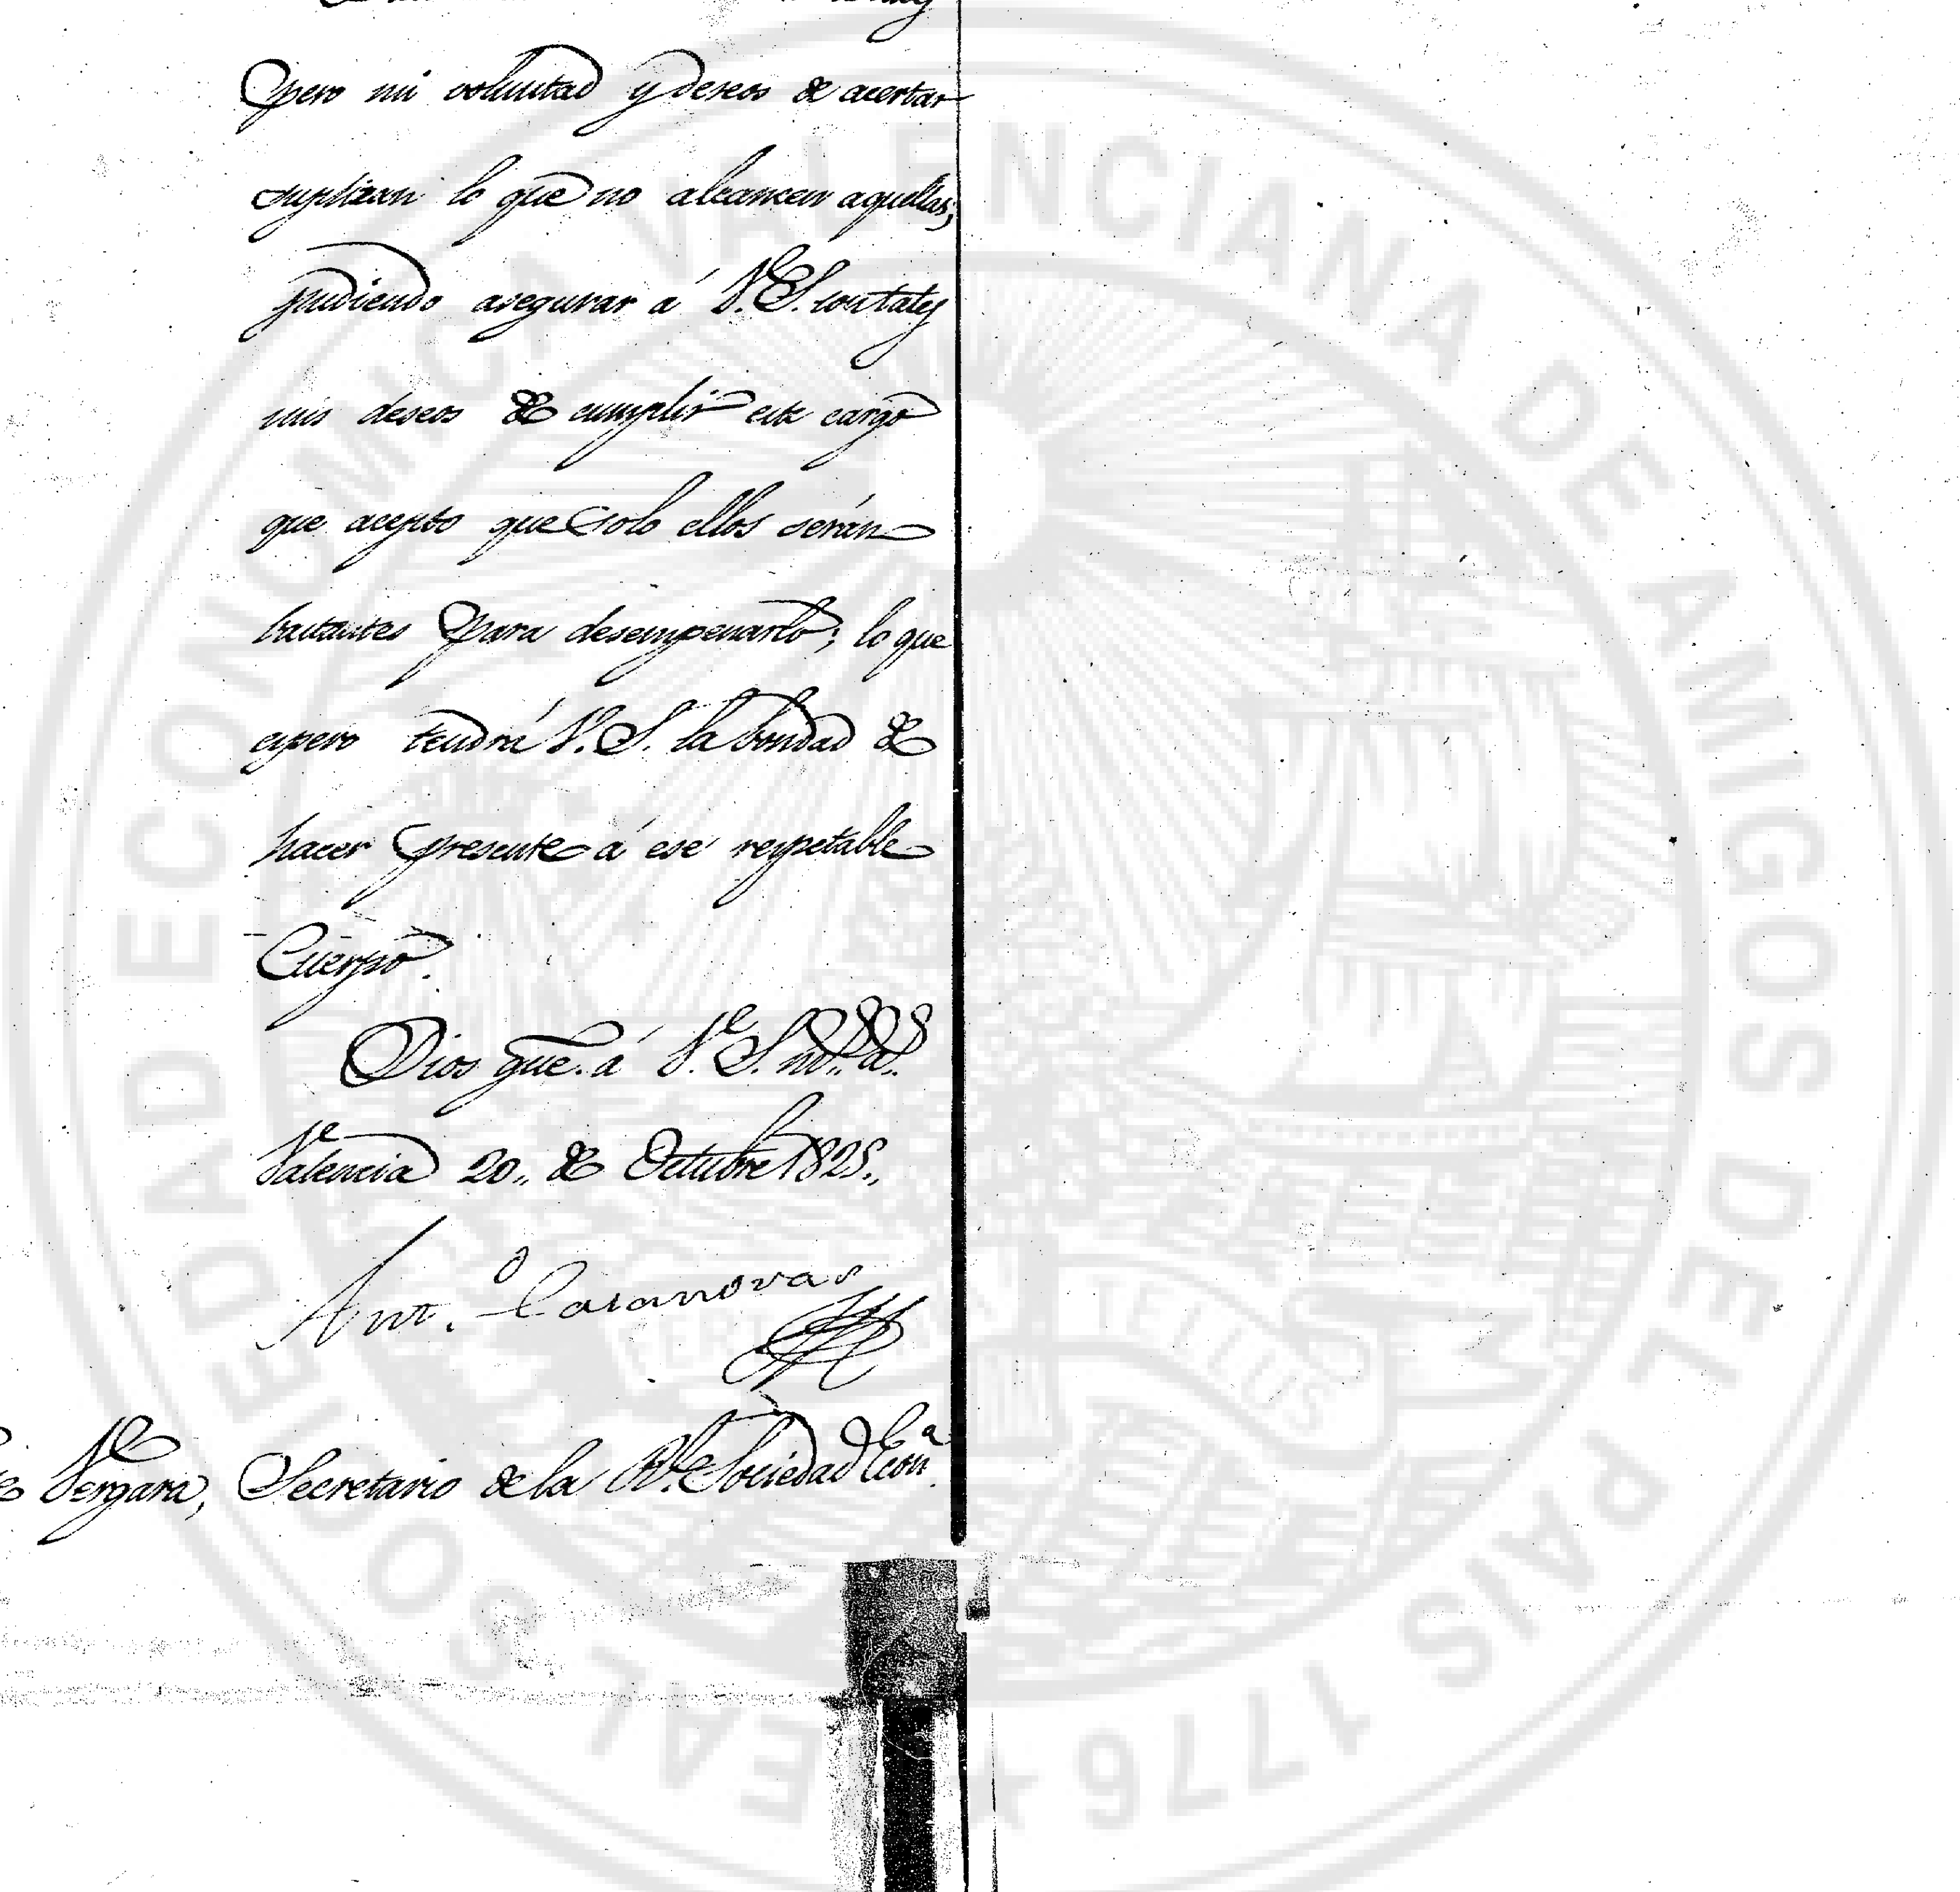 pero mi voluntad y deseos de acertar
supliran lo que no alcancen aquellas;
pudiendo asegurar á V.S. son tales
mis deseos de cumplir este cargo
que acepto que solo ellos serán
bastantes para desempeñarlo; lo que
espero tendrá V.S. la bondad de
hacer presente á ese respetable
Cuerpo.
Dios gue. á V.S. ms. as.
Valencia 20,, de Octubre 1828,,
Ant.o Casanovas
Vergara, Secretario de la Rl. Sociedad Econa.
REAL SOCIEDAD ECONOMICA VALENCIANA DE AMIGOS DEL PAIS 1776